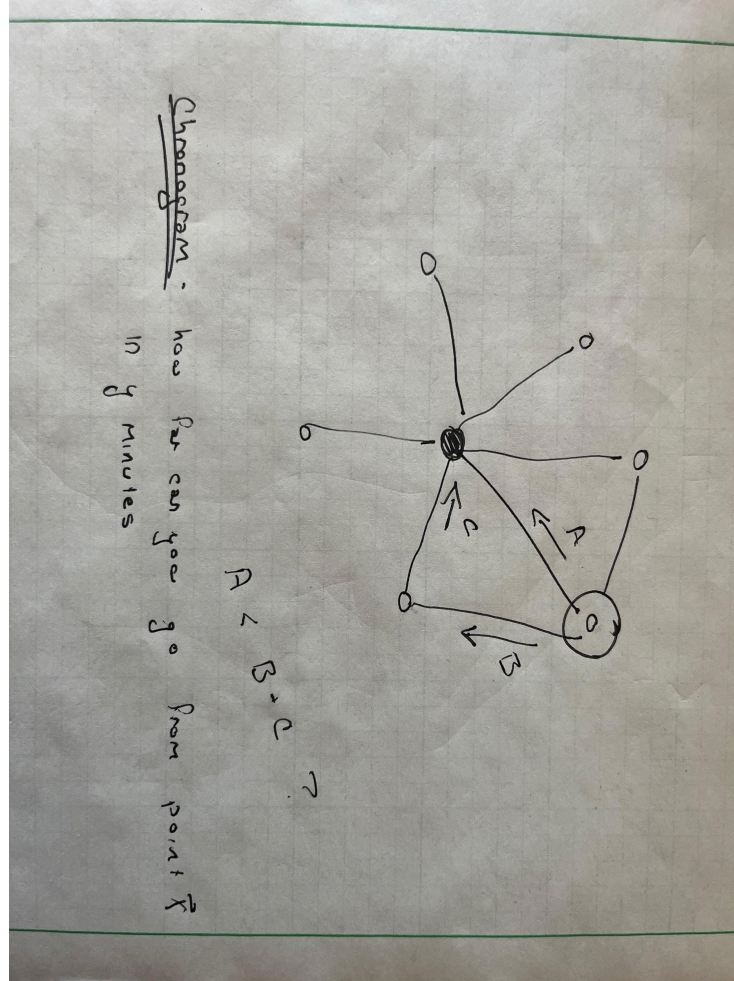 A
B
C
A < B + C ?
Chronogram: how far can you go from point x⃗
in y minutes